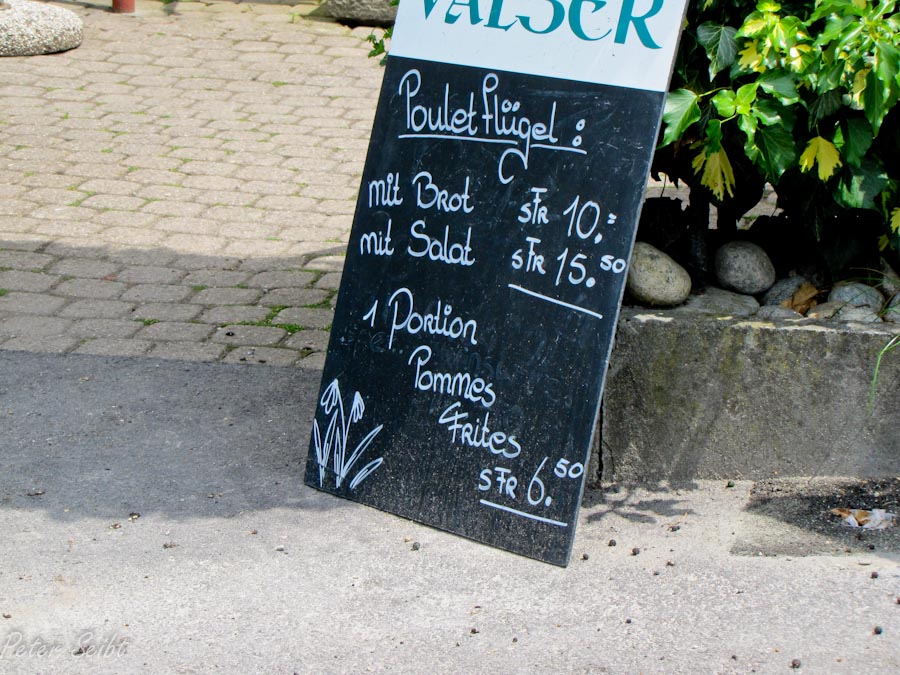 VALSER
Pouletflügel:
mit Brot sFr 10.=
mit Salat sFr 15.50
1 Portion
Pommes
Frites
sFr 6.50
Peter Seibt